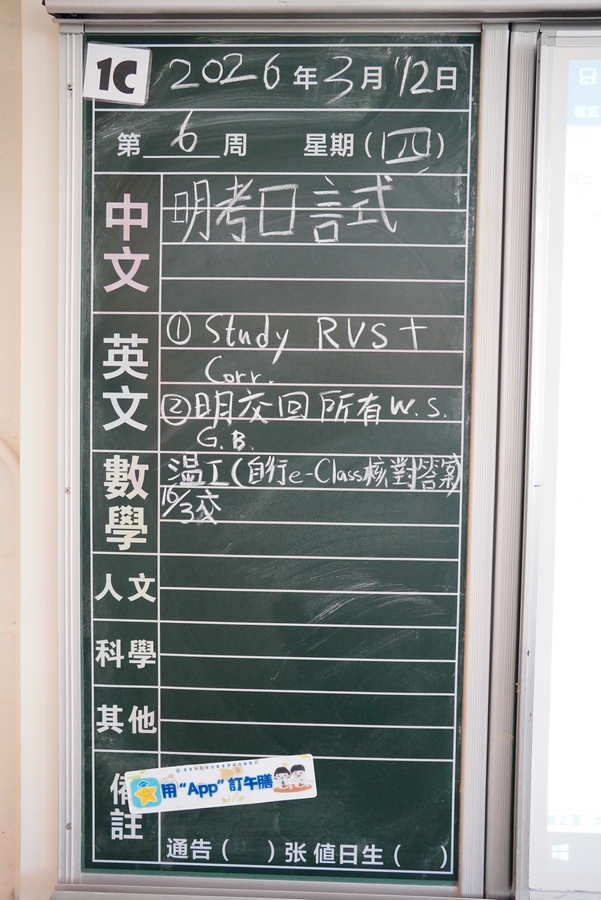 1C
2026年3月12日
第6周 星期(四)
中文
明考口試
英文
① Study RVS +
Corr.
② 明交回所有 W.S.
G.B.
數學
溫工(自行e-Class核對答案)
16/3交
人文
科學
其他
備註
用“App”訂午膳
通告( )张 值日生( )